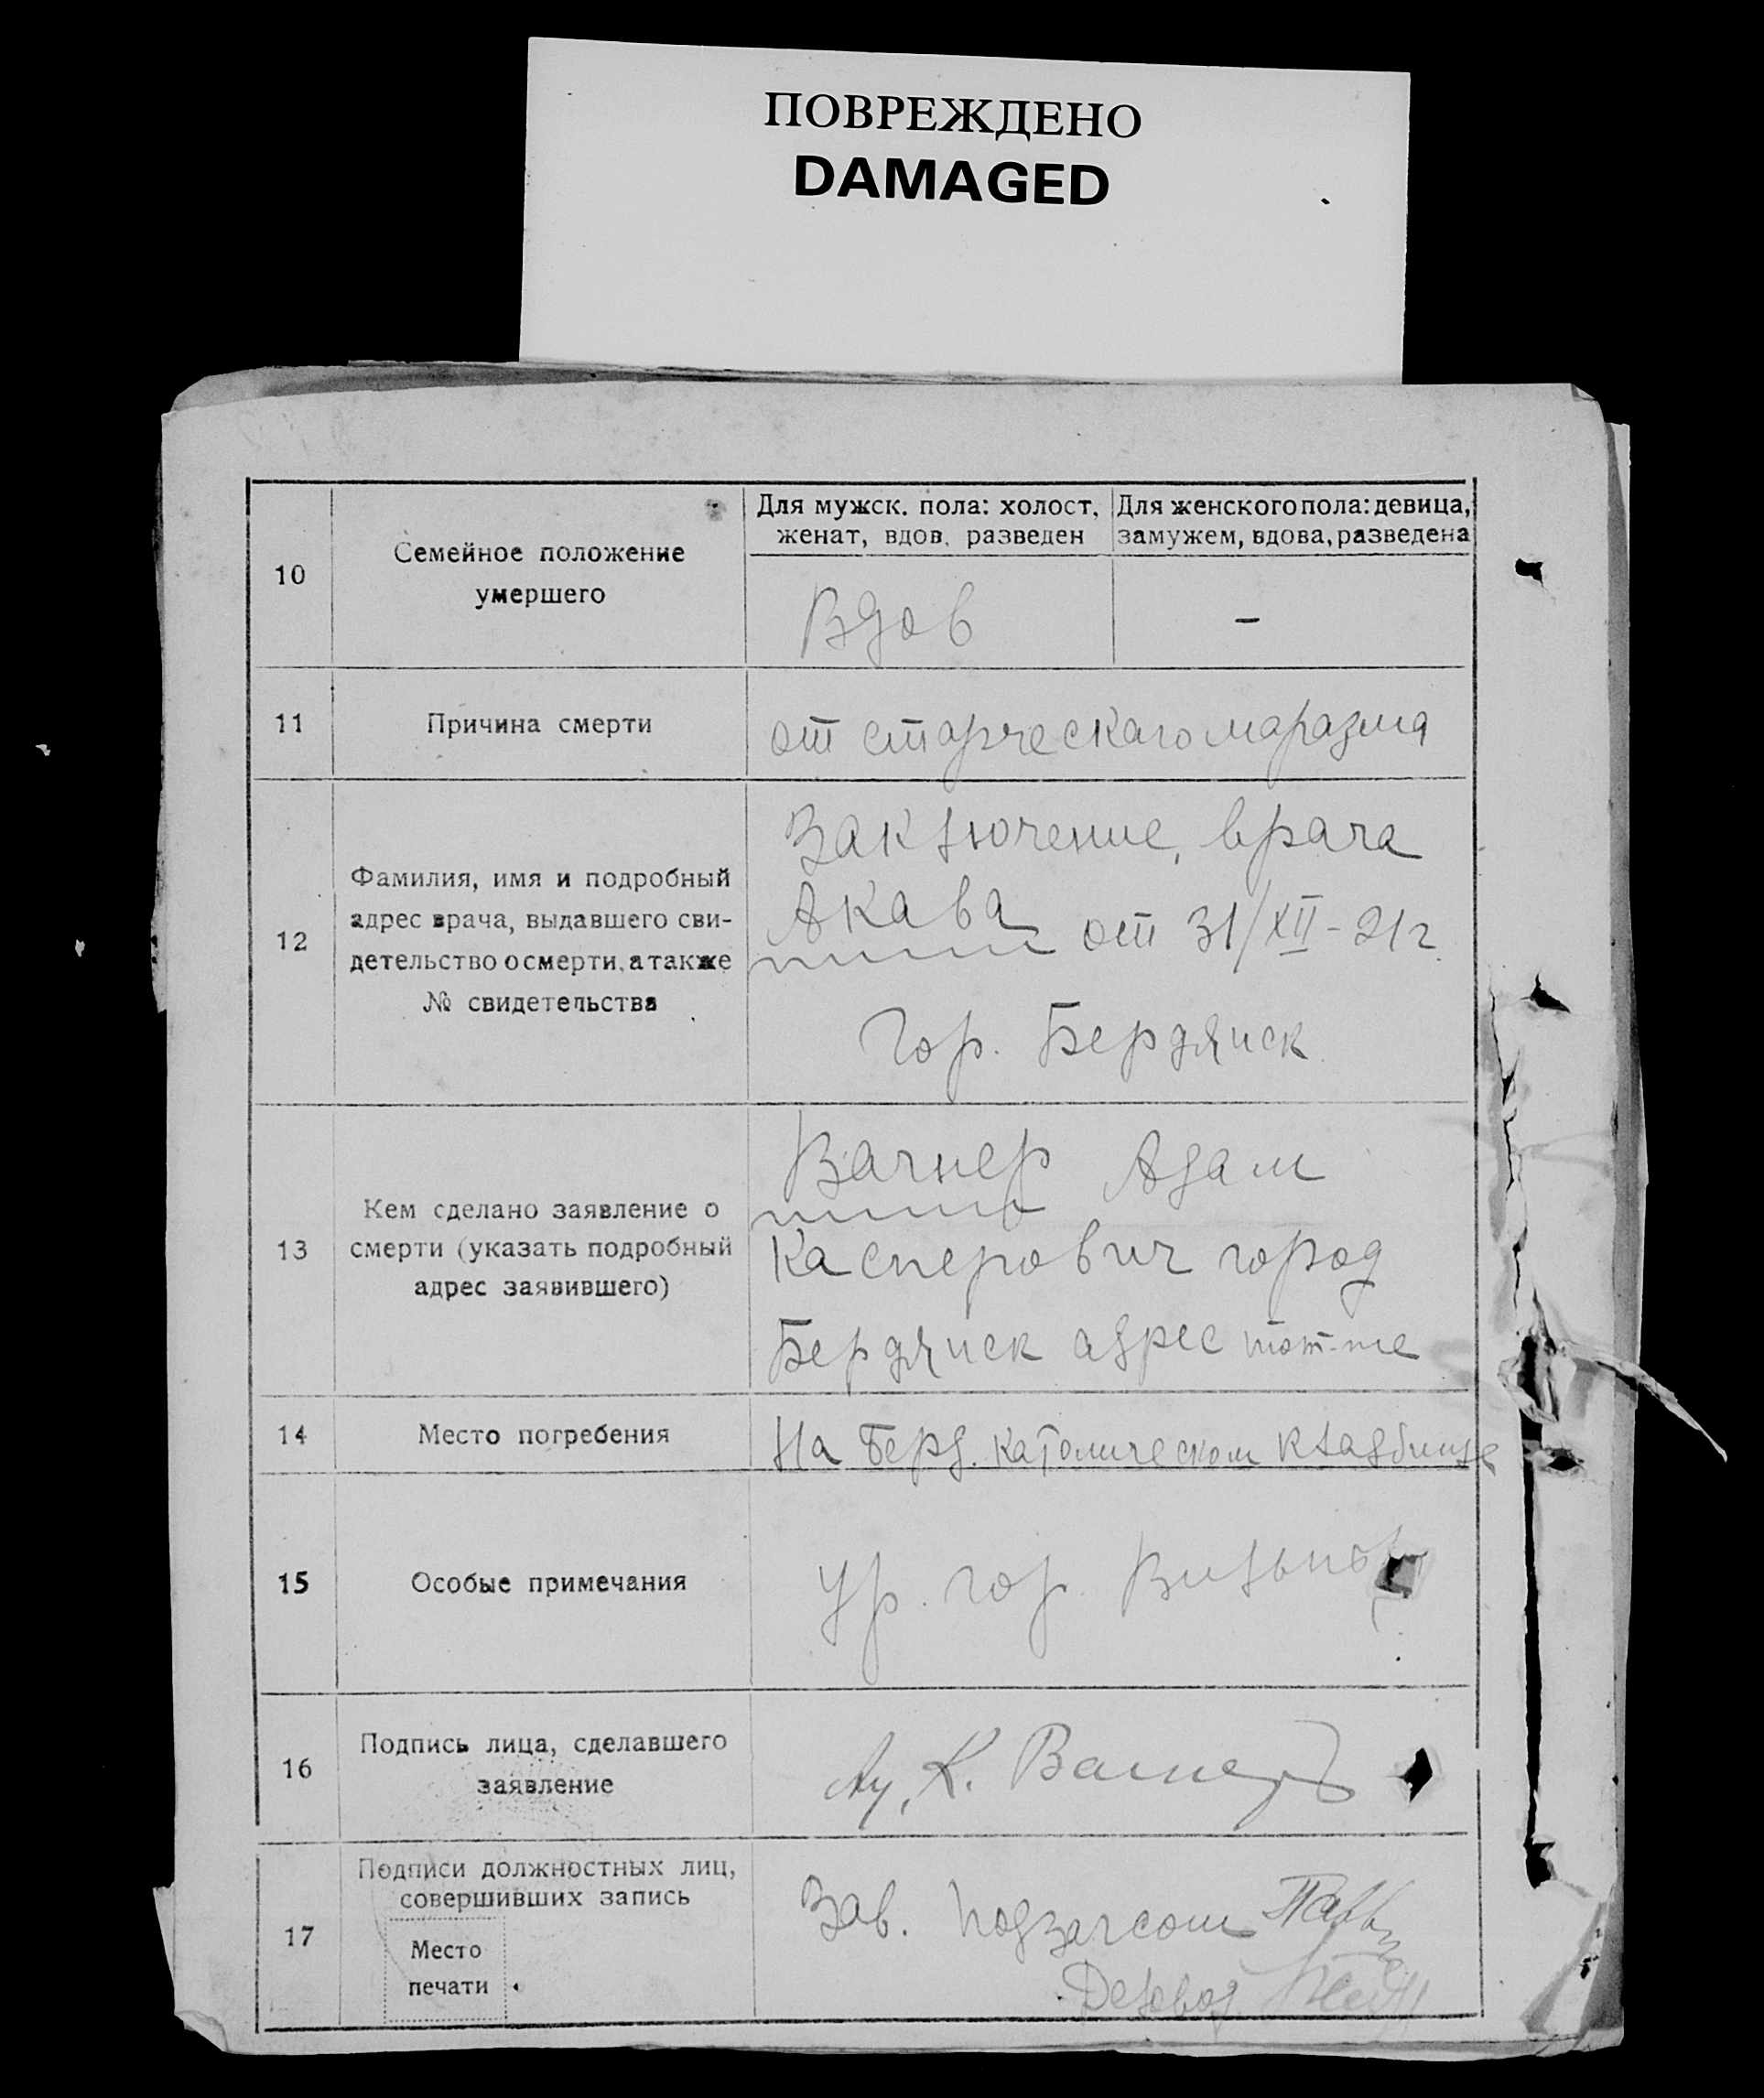 ПОВРЕЖДЕНО
DAMAGED
10
Семейное положение
умершего
Для мужск. пола: холост,
женат, вдов, разведен
Для женского пола: девица,
замужем, вдова, разведена
Вдов
-
11
Причина смерти
от старческаго маразма
12
Фамилия, имя и подробный
адрес врача, выдавшего сви-
детельство о смерти, а также
№ свидетельства
Заключение, врача
Акава от 31/XII-21г.
Гор. Бердянск
13
Кем сделано заявление о
смерти (указать подробный
адрес заявившего)
Вагнер Адам
Касперович город
Бердянск адрес тот-же
14
Место погребения
На Берд. католическом кладбище
15
Особые примечания
Ур. гор. Вильно
16
Подпись лица, сделавшего
заявление
К. Вагнер
17
Подписи должностных лиц,
совершивших запись
Место
печати
Зав. подзагсом
Деловод